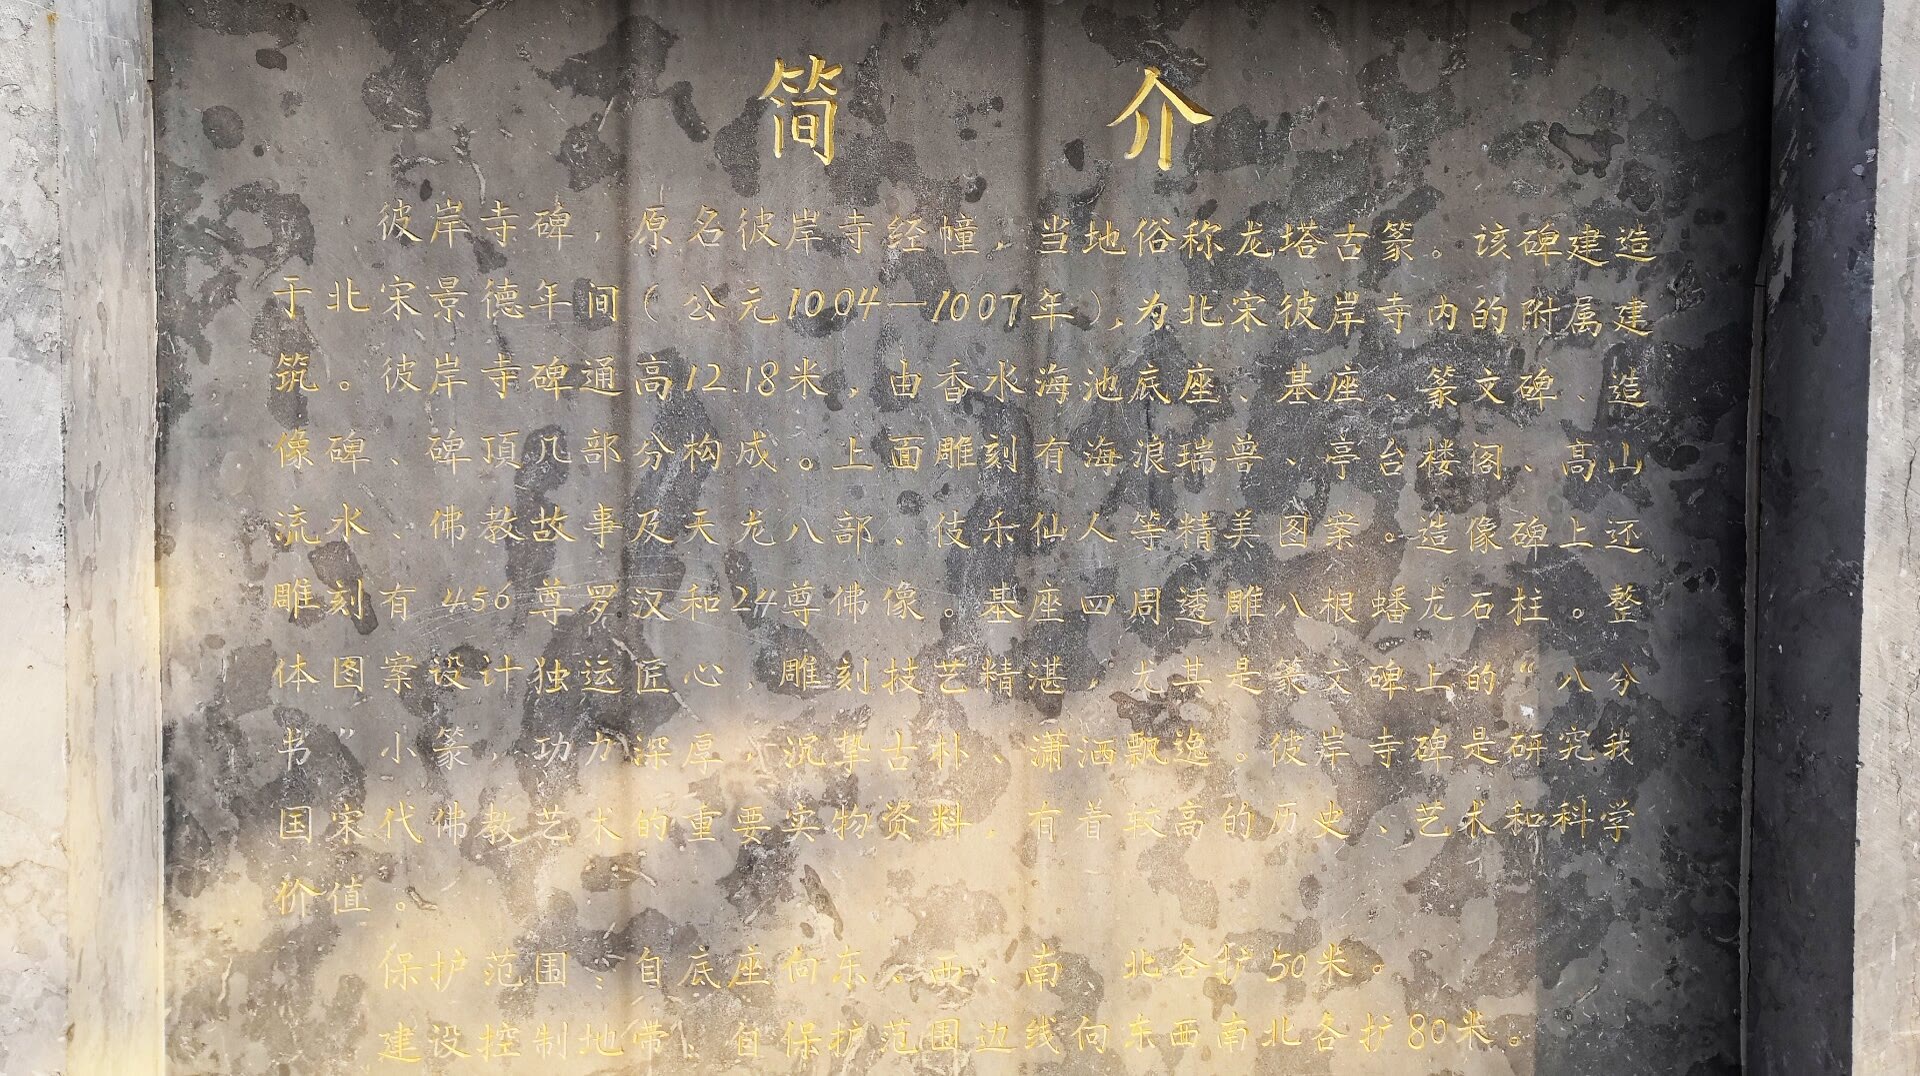 简介
彼岸寺碑，原名彼岸寺经幢，当地俗称龙塔古篆。该碑建造
于北宋景德年间（公元1004—1007年），为北宋彼岸寺内的附属建
筑。彼岸寺碑通高12.18米，由香水海池底座、基座、篆文碑、造
像碑、碑頂几部分构成。上面雕刻有海浪瑞兽、亭台楼阁、高山
流水、佛教故事及天龙八部、伎乐仙人等精美图案。造像碑上还
雕刻有456尊罗汉和24尊佛像。基座四周透雕八根蟠龙石柱。整
体图案设计独运匠心，雕刻技艺精湛，尤其是篆文碑上的“八分
书”小篆，功力深厚，沉挚古朴、潇洒飘逸。彼岸寺碑是研究我
国宋代佛教艺术的重要实物资料，有着较高的历史、艺术和科学
价值。
保护范围：自底座向东、西、南、北各扩50米。
建设控制地带：自保护范围边线向东西南北各扩80米。